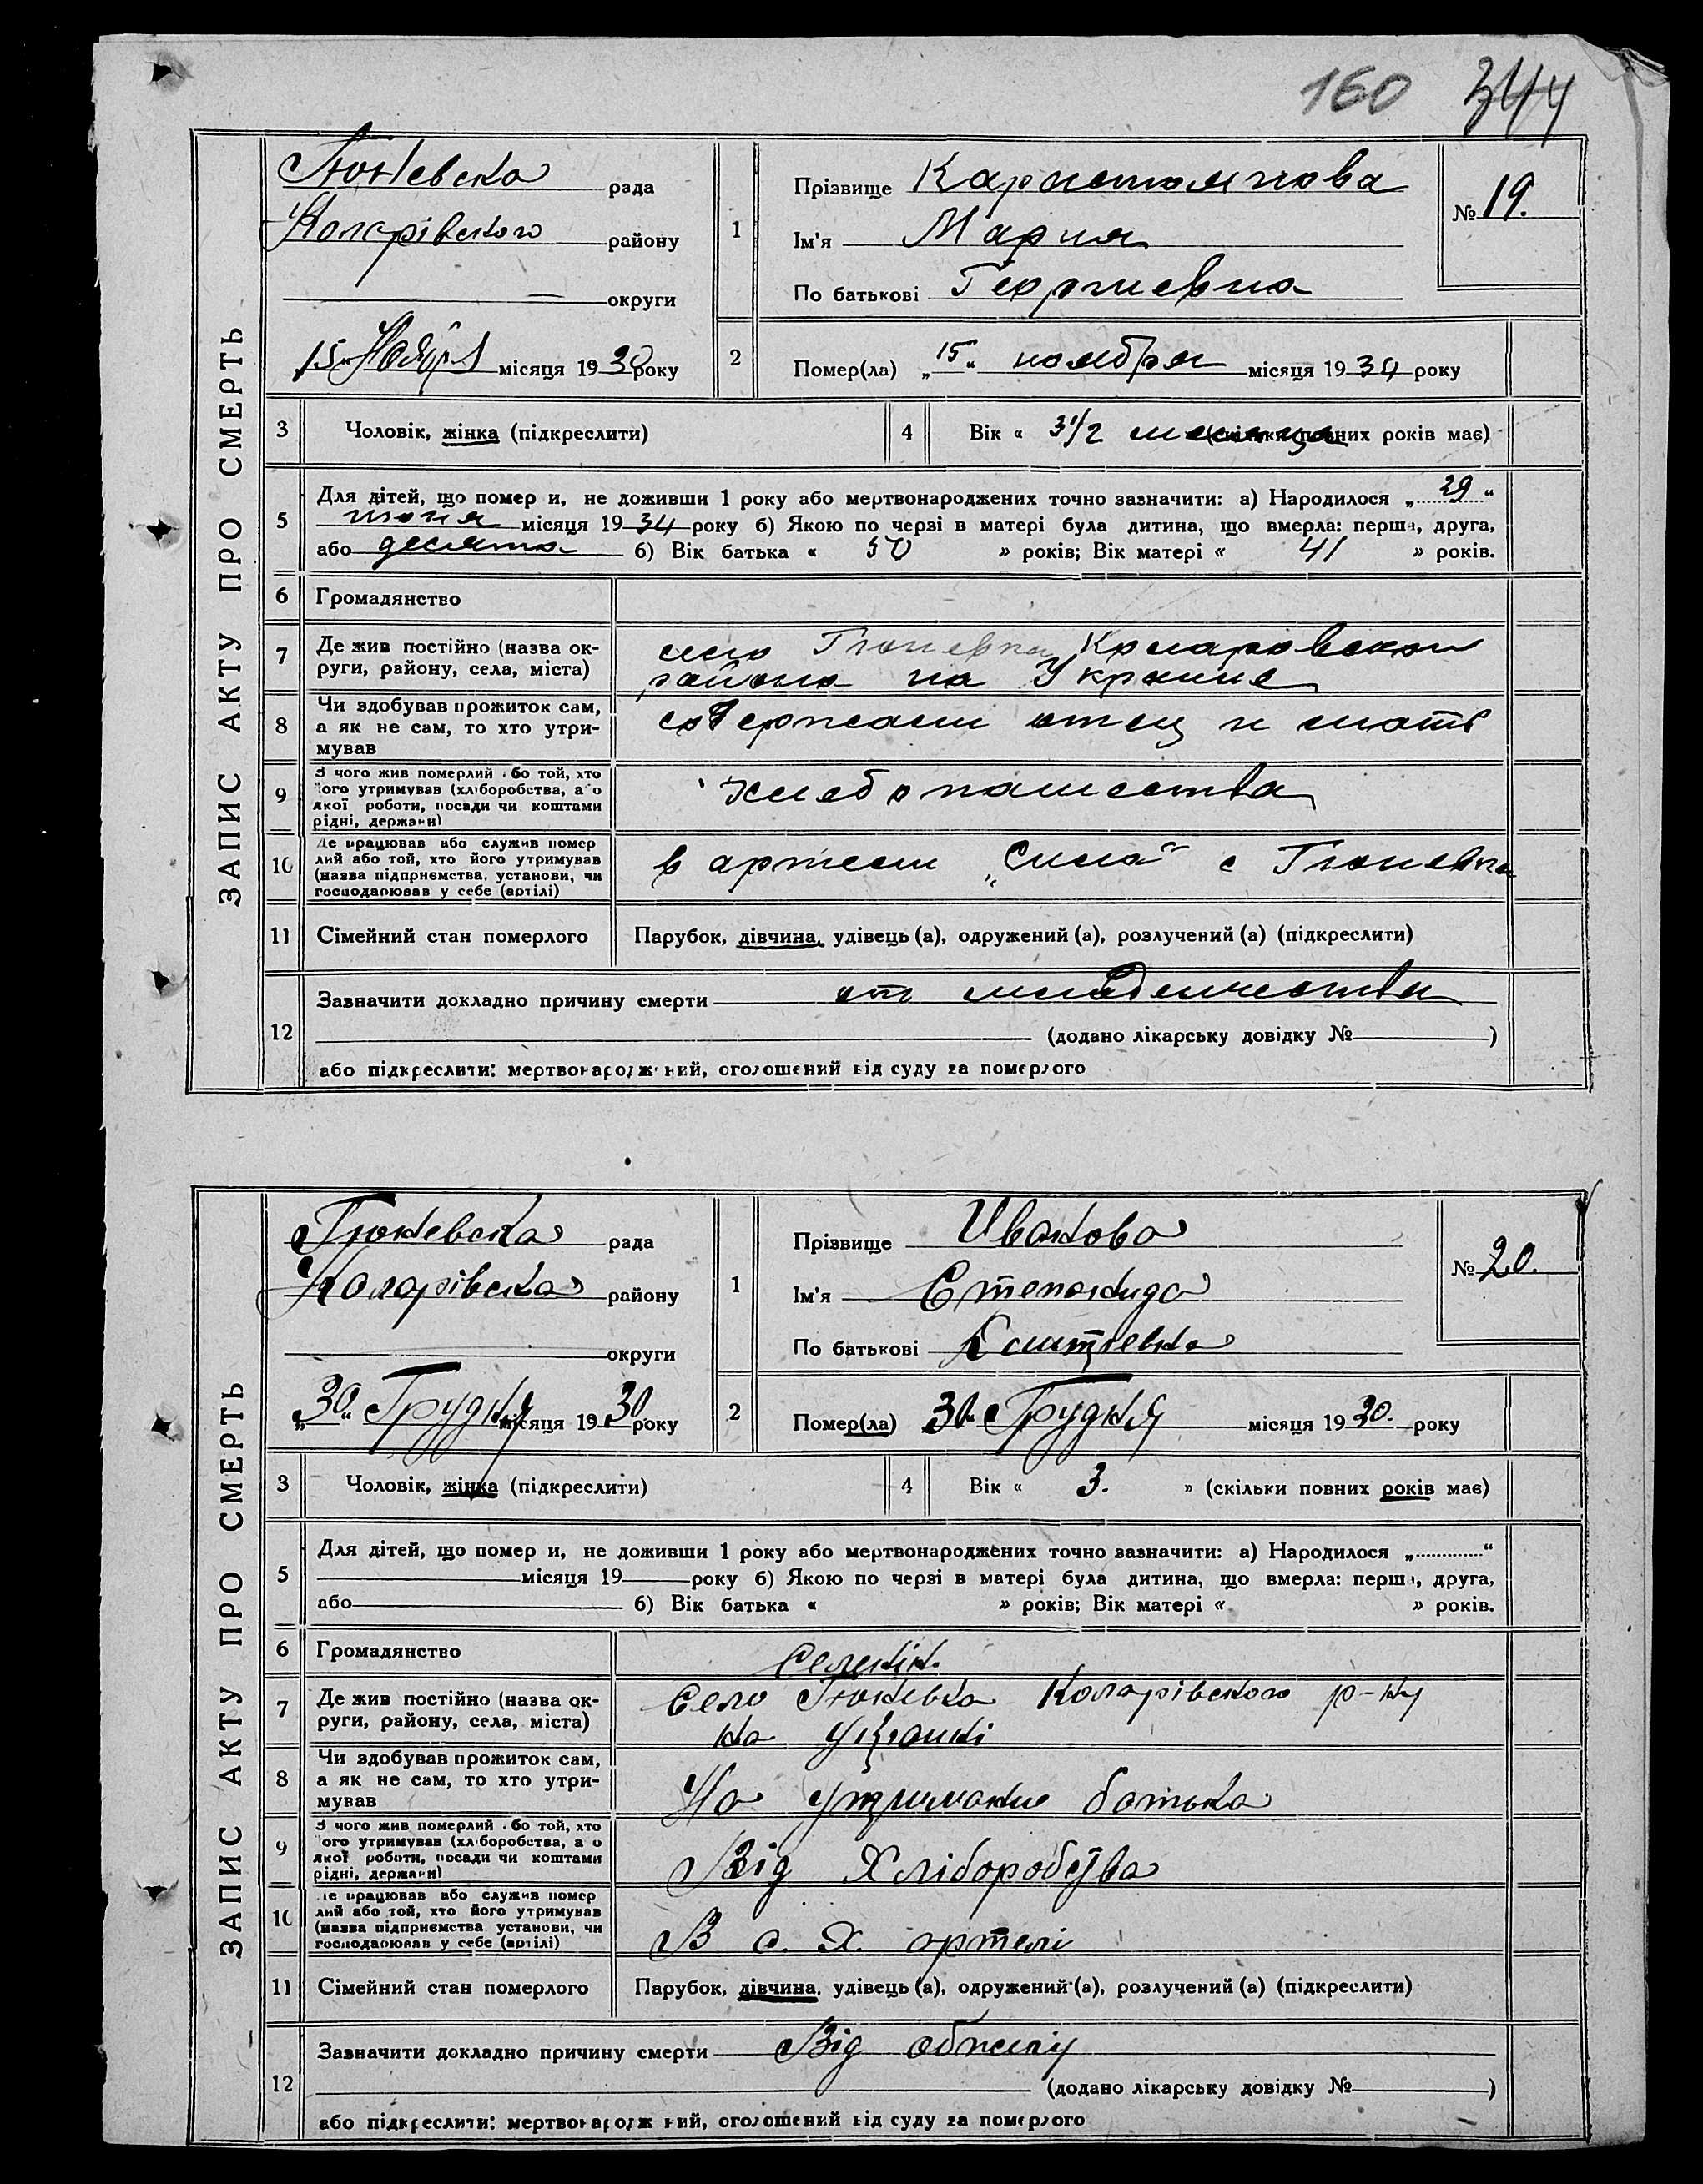 160 344
ЗАПИС АКТУ ПРО СМЕРТЬ
Тюневська рада
Коларівського району
округи
15 місяця 19 року
1
Прізвище
Ім'я Мария
По батькові Георгиевна
№ 19.
2
Помер(ла) „15“ ноября місяця 1934 року
3 Чоловік, жінка (підкреслити)
4 Вік « 3 1/2 месяца (скільки повних років має)
5 Для дітей, що помер и, не доживши 1 року або мертвонароджених точно зазначити: а) Народилося „29“
июня місяця 1934 року б) Якою по черзі в матері була дитина, що вмерла: перша, друга,
або десята б) Вік батька « 50 » років; Вік матері « 41 » років.
6 Громадянство
7 Де жив постійно (назва ок-
руги, району, села, міста)
село Тюневка Коларовского
района на Украине
8 Чи здобував прожиток сам,
а як не сам, то хто утри-
мував
содержали отец и мать
9 З чого жив померлий бо той, хто
ого утримував (хліборобства, а о
якої роботи, посади чи коштами
рідні, держави)
хлебопашества
10 Де працював або служив помер
лий або той, хто його утримував
(назва підприємства, установи, чи
господарював у себе (артілі)
в артели „Сила“ с Тюневка
11 Сімейний стан померлого
Парубок, дівчина, удівець (а), одружений (а), розлучений (а) (підкреслити)
12 Зазначити докладно причину смерти от младенчества
(додано лікарську довідку № )
або підкреслити: мертвонароджений, оголошений від суду за померлого
ЗАПИС АКТУ ПРО СМЕРТЬ
Тюневська рада
Коларівська району
округи
„30“ Грудня місяця 1930 року
1
Прізвище Иванова
Ім'я Степанида
По батькові
№ 20.
2
Помер(ла) 30 Грудня місяця 1930. року
3 Чоловік, жінка (підкреслити)
4 Вік « 3. » (скільки повних років має)
5 Для дітей, що помер и, не доживши 1 року або мертвонароджених точно зазначити: а) Народилося „ “
місяця 19 року б) Якою по черзі в матері була дитина, що вмерла: перша, друга,
або б) Вік батька « » років; Вік матері « » років.
6 Громадянство
Селянін.
7 Де жив постійно (назва ок-
руги, району, села, міста)
Село Тюневка Коларівского р-ну
на Україні
8 Чи здобував прожиток сам,
а як не сам, то хто утри-
мував
На утримание батька
9 З чого жив померлий бо той, хто
ого утримував (хліборобства, а о
якої роботи, посади чи коштами
рідні, держави)
Від Хліборобства
10 Де працював або служив помер
лий або той, хто його утримував
(назва підприємства, установи, чи
господарював у себе (артілі)
В с. х. артелі
11 Сімейний стан померлого
Парубок, дівчина, удівець (а), одружений (а), розлучений (а) (підкреслити)
12 Зазначити докладно причину смерти Від
(додано лікарську довідку № )
або підкреслити: мертвонароджений, оголошений від суду за померлого